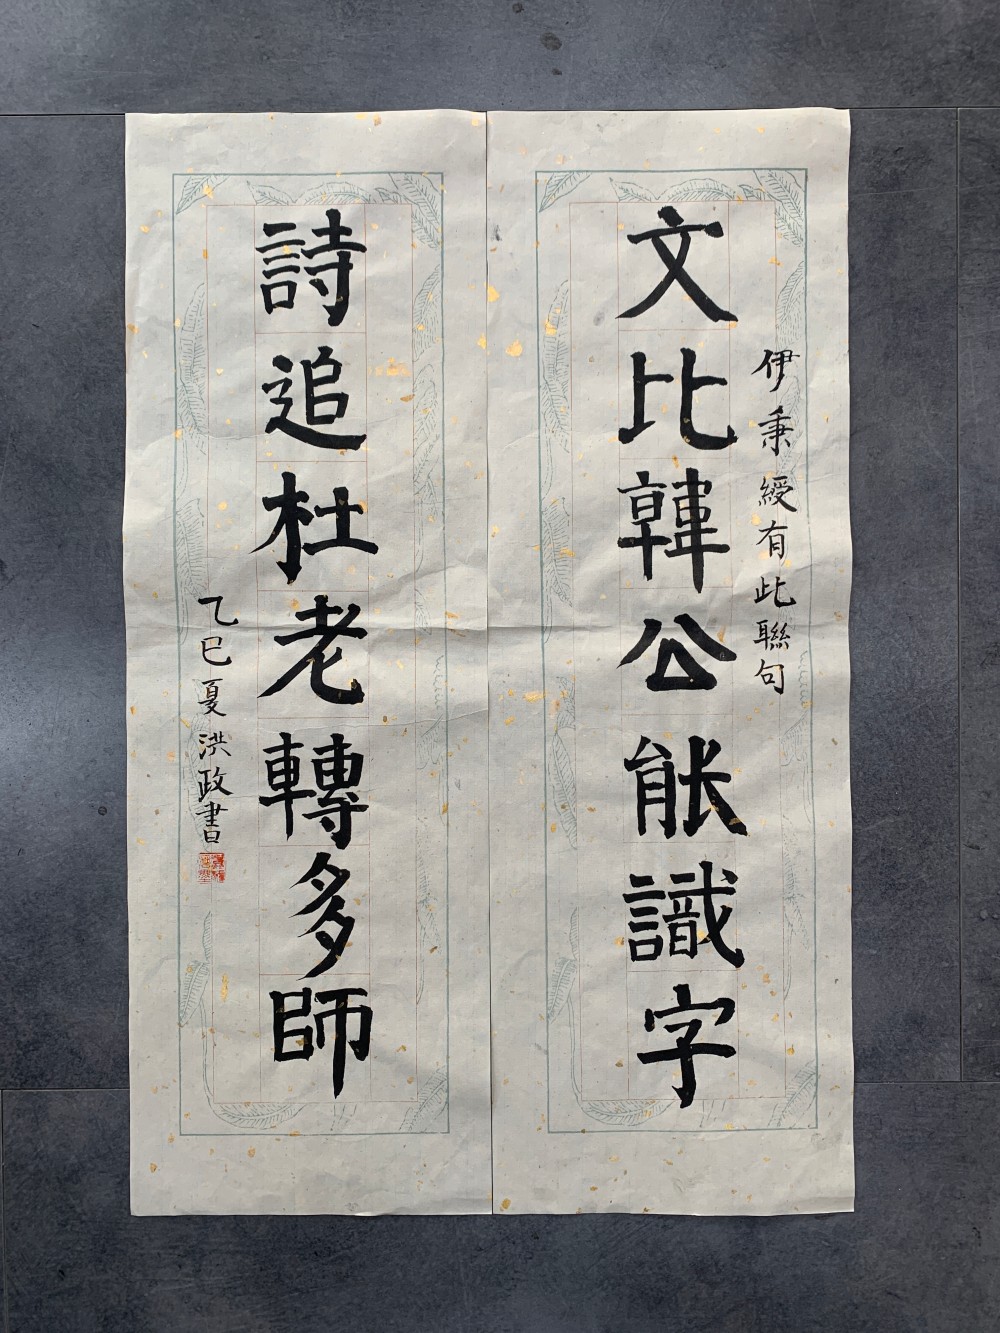 伊秉綬有此聯句
文比韓公能識字
詩追杜老轉多師
乙巳夏洪政書